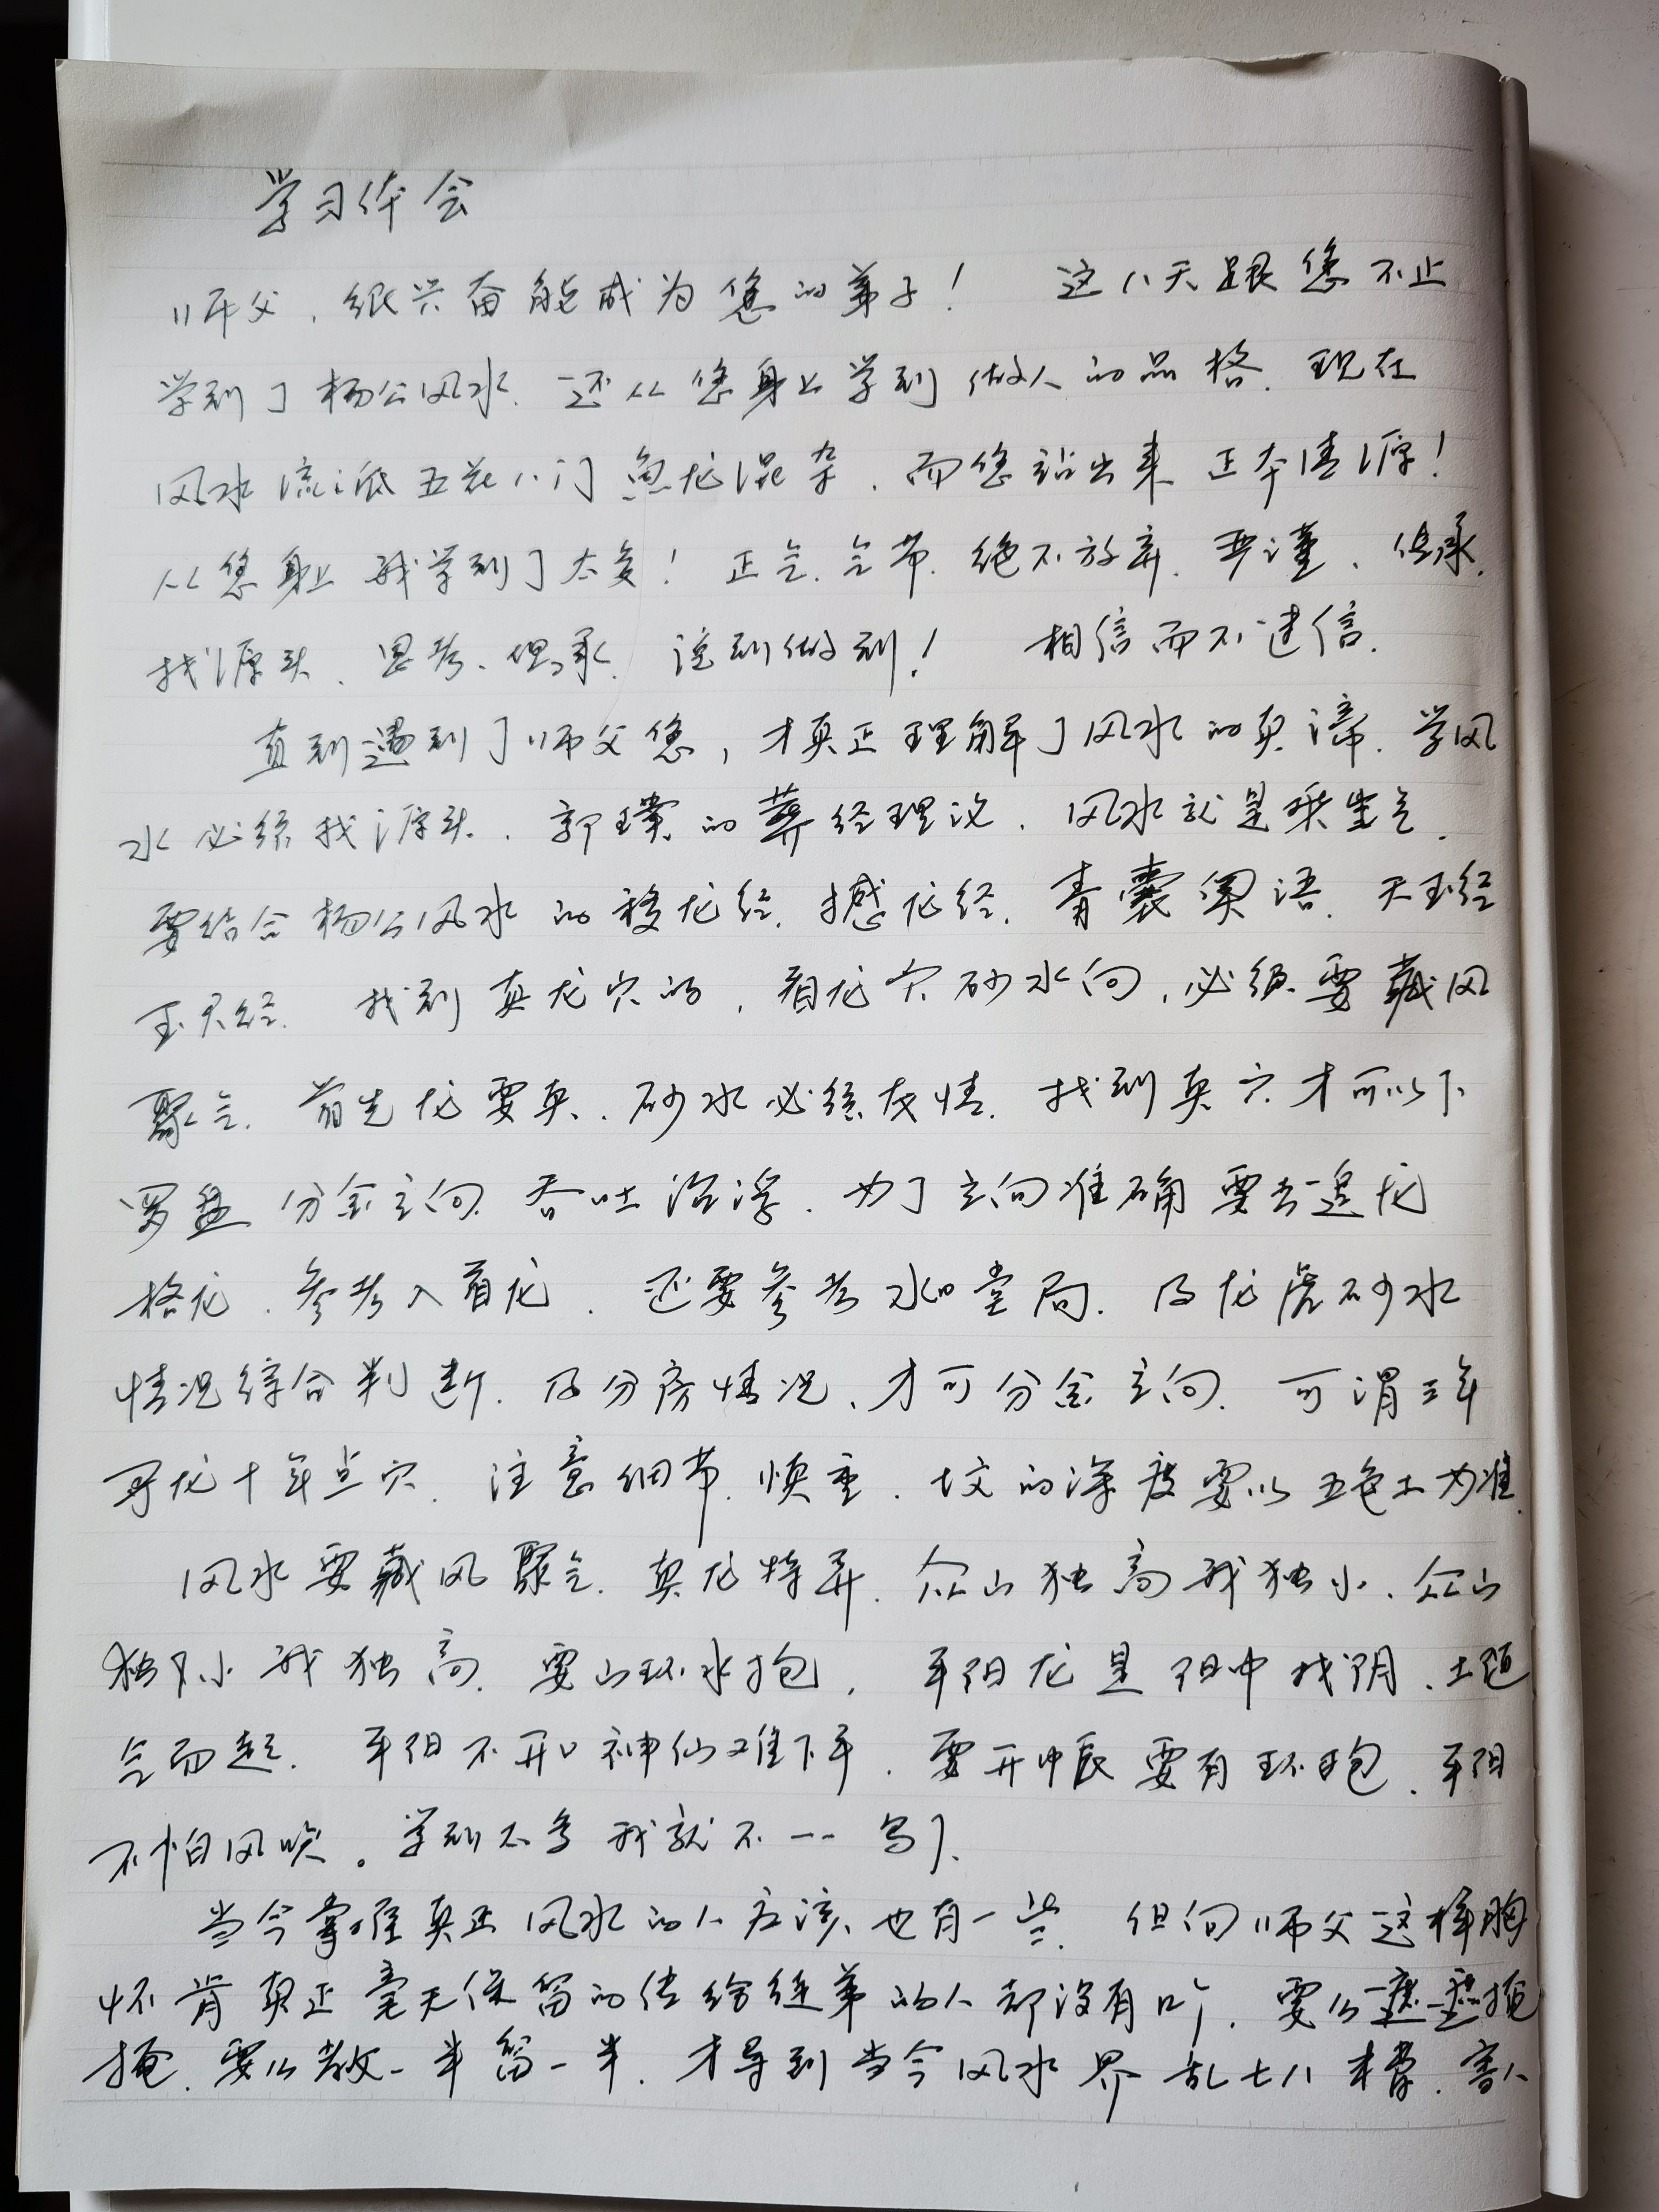 学习体会
师父，很兴奋能成为您的弟子！ 这八天跟您不止
学到了杨公风水．还从您身上学到做人的品格．现在
风水流派五花八门鱼龙混杂．而您站出来正本清源！
从您身上我学到了太多！正气．气节．绝不放弃．严谨．传承．
找源头．思考．传承．说到做到！ 相信而不迷信．
直到遇到了师父您，才真正理解了风水的真谛．学风
水必须找源头．郭璞的葬经理论．风水就是乘生气．
要结合杨公风水的疑龙经．撼龙经．青囊奥语．天玉经
玉尺经． 找到真龙穴的，看龙穴砂水向，必须要藏风
聚气．首先龙要真．砂水必须有情．找到真穴才可以下
罗盘 分金立向．吞吐沉浮．为了立向准确要去追龙
格龙．参考入首龙．还要参考水口堂局．及龙虎砂水
情况综合判断．及分房情况．才可分金立向．可谓三年
寻龙十年点穴．注意细节．慎重．坟的深度要以五色土为准．
风水要藏风聚气．真龙特异．众山独高我独小．众山
独小我独高．要山环水抱． 平阳龙是阳中找阴．土随
气而起．平阳不开口神仙难下手．要开中 要有环抱．平阳
不怕风吹。学到太多我就不一一写了．
当今掌握真正风水的人应该也有一些．但向师父这样胸
怀肯真正毫无保留的传给徒弟的人却没有几个．要么遮遮掩
掩．要么教一半留一半．才导到当今风水界乱七八糟．害人